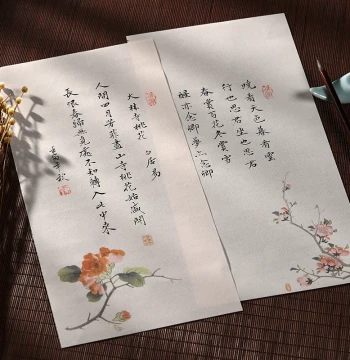 曉看天色暮看雲
行也思君坐也思君
春賞百花冬賞雪
醒亦念卿夢亦念卿
大林寺桃花 白居易
人間四月芳菲盡山寺桃花始盛開
長恨春歸無覓處不知轉入此中來